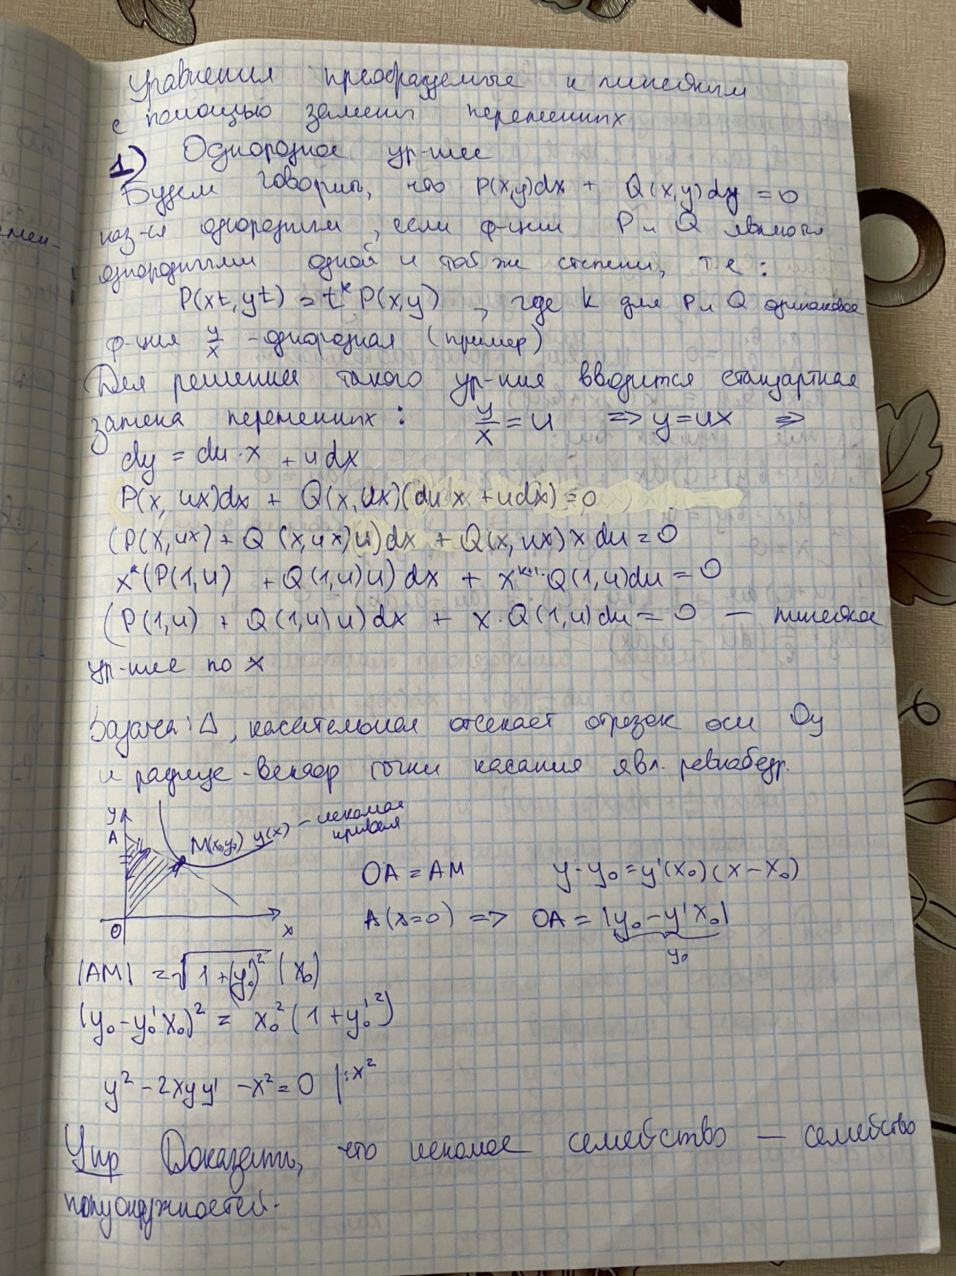 Уравнения преобразуемые к линейным
с помощью замены переменных
1) Однородное ур-ние
Будем говорить, что P(x,y)dx + Q(x,y)dy = 0
наз-ся однородным, если ф-ции P и Q являются
однородными одной и той же степени, т.е:
P(xt, yt) = t^k P(x,y) , где k для P и Q одинаковое
ф-ция y/x - однородная (пример)
Для решения такого ур-ния вводится стандартная
замена переменных: y/x = u => y = ux =>
dy = du·x + udx
P(x, ux)dx + Q(x, ux)(du x + udx) = 0
(P(x, ux) + Q (x, ux)u)dx + Q(x, ux) x du = 0
x^k (P(1,u) + Q(1,u)u) dx + x^{k+1} Q(1,u)du = 0
(P(1,u) + Q(1,u)u)dx + x·Q(1,u)du = 0 — линейное
ур-ние по x
Задача: Δ, касательная отсекает отрезок оси Oy
и радиус-вектор точки касания явл. равнобедр.
y
A
M(x₀y₀) y(x) - искомая
кривая
O
x
OA = AM y - y₀ = y'(x₀)(x - x₀)
A(x=0) => OA = |y₀ - y'x₀|
y₀
|AM| = √(1+(y₀')²) |x₀|
(y₀ - y₀'x₀)² = x₀²(1 + y₀'²)
y² - 2xyy' - x² = 0 |:x²
Упр Доказать, что искомое семейство — семейство
полуокружностей.